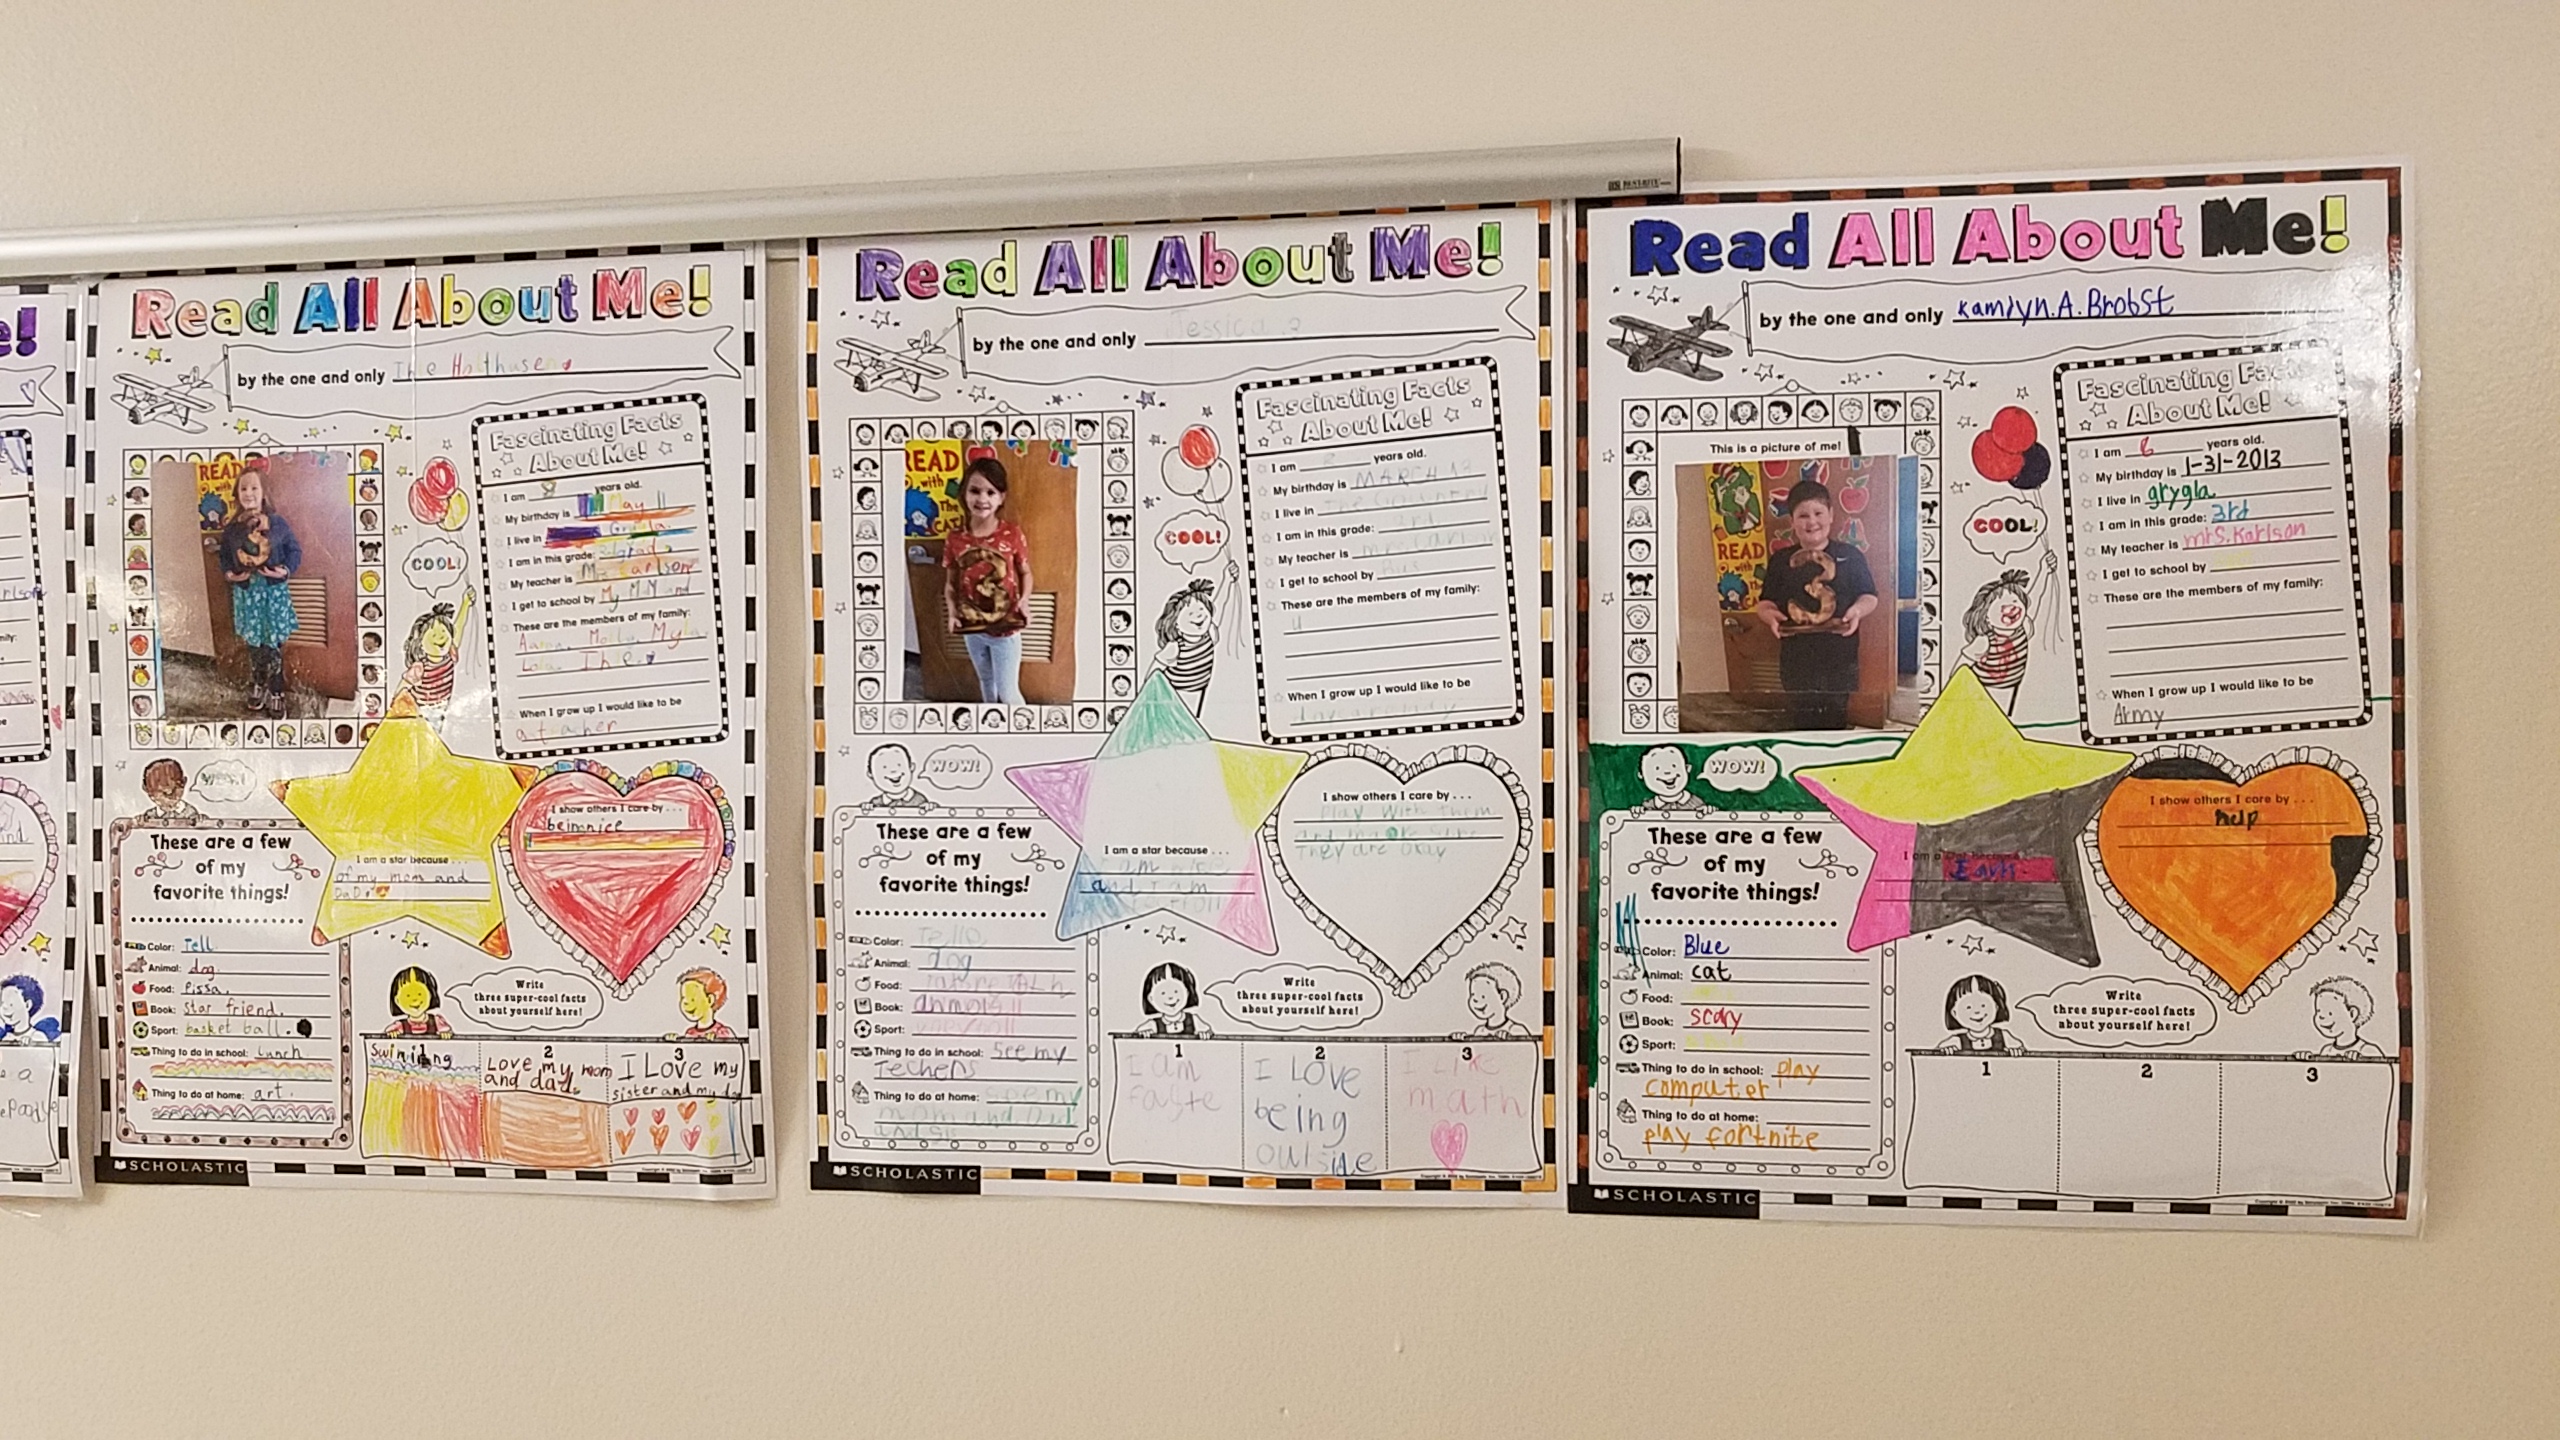 Read All About Me!
by the one and only The Holthusen
READ
Fascinating Facts
About Me!
I am 8 years old.
My birthday is May 11
I live in
I am in this grade: 3 grade
My teacher is Mrs Carlson
I get to school by My M.M and
These are the members of my family:
When I grow up I would like to be
a t acher
COOL!
I am a star because . . .
of my mom and
DaD.
I show others I care by . . .
being nice
These are a few
of my
favorite things!
Color: Tell
Animal: dog.
Food: Pissa.
Book: Star friend.
Sport: basket ball.
Thing to do in school: Lunch
Thing to do at home: art.
Write
three super-cool facts
about yourself here!
1 2 3
Swimiing
Love my mom
and dad.
I Love my
sister and my dog
SCHOLASTIC
Read All About Me!
by the one and only Jessica
READ
with
The
CAT!
Fascinating Facts
About Me!
I am 8 years old.
My birthday is MARCH 13
I live in The Country
I am in this grade: 3rd
My teacher is mrs. Carlson
I get to school by Bus
These are the members of my family:
When I grow up I would like to be
COOL!
WOW!
I am a star because . . .
I am nice
and I am
I show others I care by . . .
Play with them
and make sure
They are okay
These are a few
of my
favorite things!
Color: Tello
Animal: dog
Food:
Book: anmols
Sport:
Thing to do in school: See my
Techers
Thing to do at home: see my
mom and Dad
and sis
Write
three super-cool facts
about yourself here!
1 2 3
I am
faste
I Love
being
outside
I Like
math
SCHOLASTIC
Read All About Me!
by the one and only Kamlyn.A.Brobst
This is a picture of me!
READ
with
Fascinating Facts
About Me!
I am 8 years old.
My birthday is 1-31-2013
I live in grygla
I am in this grade: 3rd
My teacher is mrs.Karlson
I get to school by
These are the members of my family:
When I grow up I would like to be
Army
COOL!
WOW!
I show others I care by . . .
help
These are a few
of my
favorite things!
Color: Blue
Animal: cat
Food:
Book: scary
Sport:
Thing to do in school: play
computer
Thing to do at home:
play fortnite
Write
three super-cool facts
about yourself here!
1 2 3
SCHOLASTIC